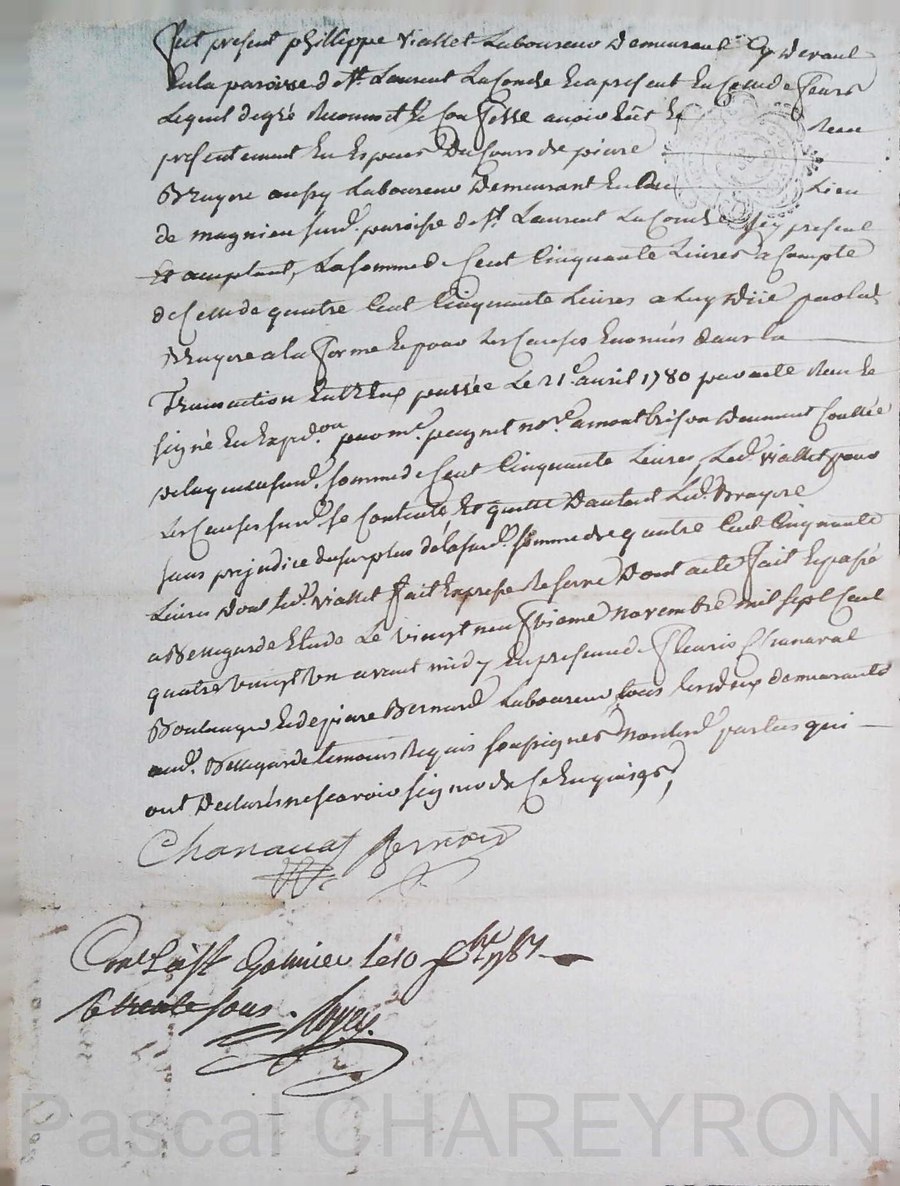 fut present phillippe viallet Laboureur Demeurant Cy devant
En la paroisse de st. Laurent La Conche Et a present En Celle de feurs
Lequel de gré Reconnoit & Confesse avoir Eüt & Receu
presentement En Especes Du Cours de pierre
Bruyere aussy Laboureur Demeurant En Lieu
de magnieu surd. paroisse de st. Laurent La Conche Icy present
Et acceptant, La somme de Cent Cinquante Livres a Compte
de Celle de quatre Cent Cinquante Livres a Luy düe par led.
Bruyere a la forme & pour Les Causes Enoncés dans la
Transaction Entr'Eux passée Le 21e. avril 1780 par acte Receu &
signé En Expedon. par me. paignet nore. a montbrison Deument Conllée
de laquelle surd. somme de Cent Cinquante Livres, Led. viallet pour
Les Causes surd. se Contente Et quitte D'autant Led. Bruyere
sans prejudice du surplus de la surd. somme de quatre Cent Cinquante
Livres dont led. viallet fait Expresse Reserve Dont acte fait & passé
a Bellegarde Etude Le vingt neufvieme novembre mil sept Cent
quatre vingt un avant midy En presence de fleurie Chanavat
Boulanger & de pierre Bernard Laboureur tous Les deux demeurants
aud. Bellegarde temoins Requis soussignés non lesd. parties qui
ont Declarés ne scavoir signer de Ce Enquises,
Chanavat Bernard
Conlé à st Galmier le 10 xbre 1781
R trente sous.
Pascal CHAREYRON